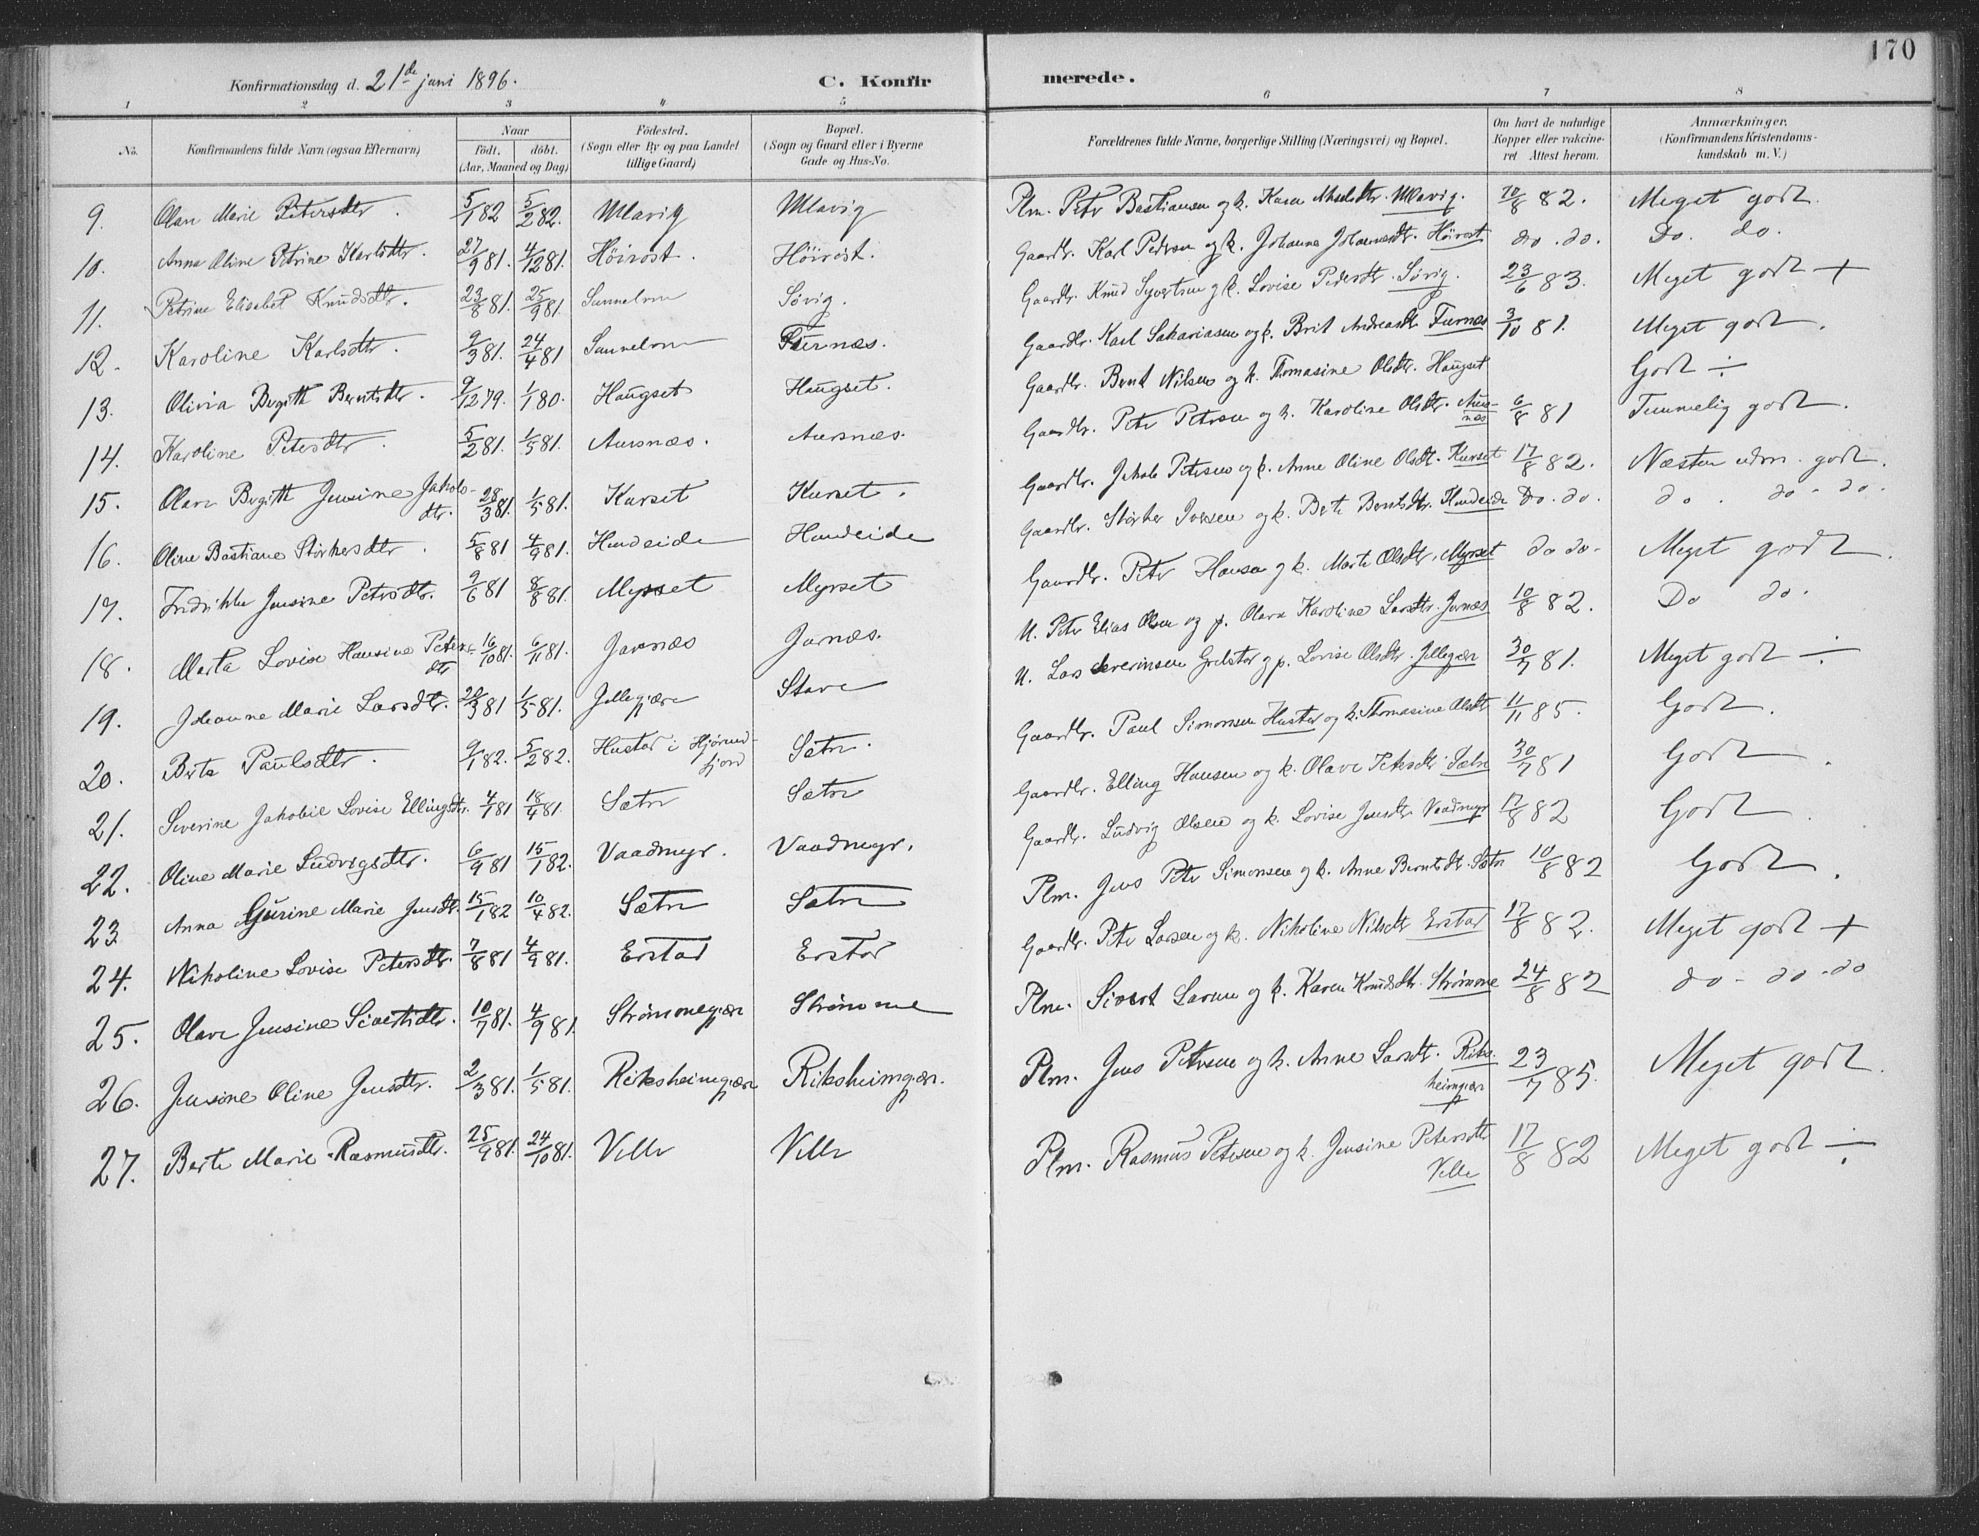 170
Konfirmationsdag d. 21de juni 1896. C. Konfirmerede.
1 2 3 4 5 6 7 8
No. Konfirmandens fulde Navn (ogsaa Efternavn) Naar födt. döbt. (Aar, Maaned og Dag) Födested. (Sogn eller By og paa Landet tillige Gaard) Bopæl. (Sogn og Gaard eller i Byerne Gade og Hus-No. Forældrenes fulde Navne, borgerlige Stilling (Næringsvei) og Bopæl. Om havt de naturlige Kopper eller vakcineret Attest herom. Anmærkninger. (Konfirmandens Kristendomskundskab m. V.)
9. Olave Marie Petersdtr. 5/1 82 5/2 82. Ulavig Ulavig Plm. Peter Bastiansen og k. Karen Ulavig. 10/8 82. Meget godt.
10. Anna Oline Petrine Karlsdtr. 27/9 81. 4/12 81. Höirost. Höirost. Gaardbr. Karl Pedersen og k. Johanna Johannesdtr. Höirost do. do. Do. do.
11. Petrine Elisabet Knudsdtr. 23/8 81. 25/9 81. Sunnelven Sövig. Gaardbr. Knud Syvertsen og k. Lovise Pedersdtr. Sövig. 23/6 83. Meget godt +
12. Karoline Karlsdtr. 9/3 81. 24/4 81 Sunnelven Furnæs. Gaardbr. Karl Sakariasen og k. Brit Andreasdtr Furnæs 3/10 81. Meget godt.
13. Olivia Birgitte Berntsdtr. 9/12 79. 1/1 80. Haugset Haugset. Gaardbr. Bernt Nilsen og k. Thomasine Olsdtr. Haugset Godt ÷
14. Karoline Petersdtr. 5/2 81. 1/5 81. Aursnæs. Aursnæs. Gaardbr. Peter Petersen og k. Karoline Olsdtr. Aursnæs 6/8 81 Temmelig godt.
15. Olave Birgitte Jensine Jakobdtr. 28/3 81. 1/5 81. Kurset Kurset. Gaardbr. Jakob Petersen og k. Anne Oline Olsdtr. Kurset 17/8 82. Næsten udm. godt.
16. Oline Bastiane Störkersdtr. 5/8 81 4/9 81. Hundeide Hundeide Gaardbr. Störker Iversen og k. Berte Berntsdtr. Hundeide Do. do. do. do - do.
17. Fredrikke Jensine Petersdtr. 9/6 81 8/8 81. Myrset Myrset Gaardbr. Peter Hansen og k. Marte Olsdtr. Myrset do do. Meget godt.
18. Marta Lovise Hansine Petersdtr 16/10 81. 6/11 81. Jarnæs Jarnæs. U. Peter Elias Olsen og p. Olava Karoline Larsdtr. Jarnæs 10/8 82. Do do.
19. Johanne Marie Larsdtr. 28/3 81 1/5 81. Jellegjære Stave U. Lars Severinsen Grebstad og p. Lovise Olsdtr. Jellegjære 30/7 81. Meget godt ÷
20. Berte Paulsdtr. 9/1 82. 5/2 82. Hustad i Hjörundfjord Sætre. Gaardbr. Paul Simonsen Hustad og k. Thomasine Olsdtr 11/11 85. Godt.
21. Severine Jakobie Lovise Ellingsdtr. 4/1 81 18/4 81. Sætre Sætre Gaardbr. Elling Hansen og k. Olave Petersdtr. Sætre 30/7 81 Godt.
22. Oline Marie Ludvigsdtr. 6/9 81 15/1 82. Vaadmyr. Vaadmyr. Gaardbr. Ludvig Olsen og k. Lovise Jensdtr Vaadmyr 17/8 82 Godt.
23 Anna Gurine Marie Jensdtr. 15/1 82 10/4 82. Sætre Sætre Plm. Jens Peter Simonsen og k. Anne Berntsdtr. Sætre 10/8 82 Godt.
24. Nikoline Lovise Petersdtr. 7/8 81 4/9 81. Erstad Erstad Gaardbr. Peter Larsen og k. Nikoline Nilsdtr Erstad 17/8 82. Meget godt +
25. Olave Jensine Sivertsdtr. 10/7 81. 4/9 81. Strömmegjære Strömme Plm. Sivert Larsen og k. Karen Knudsdtr. Strömme 24/8 82 do - do - do
26. Jensine Oline Jensdtr. 2/3 81. 1/5 81. Riksheimgjære Riksheimgjær. Plm. Jens Petersen og k. Anne Larsdtr. Riksheimgjære 23/7 85. Meget godt.
27. Berte Marie Rasmusdtr. 25/9 81. 24/10 81. Velle Velle Plm. Rasmus Petersen og k. Jensine Petersdtr Velle 17/8 82 Meget godt ÷